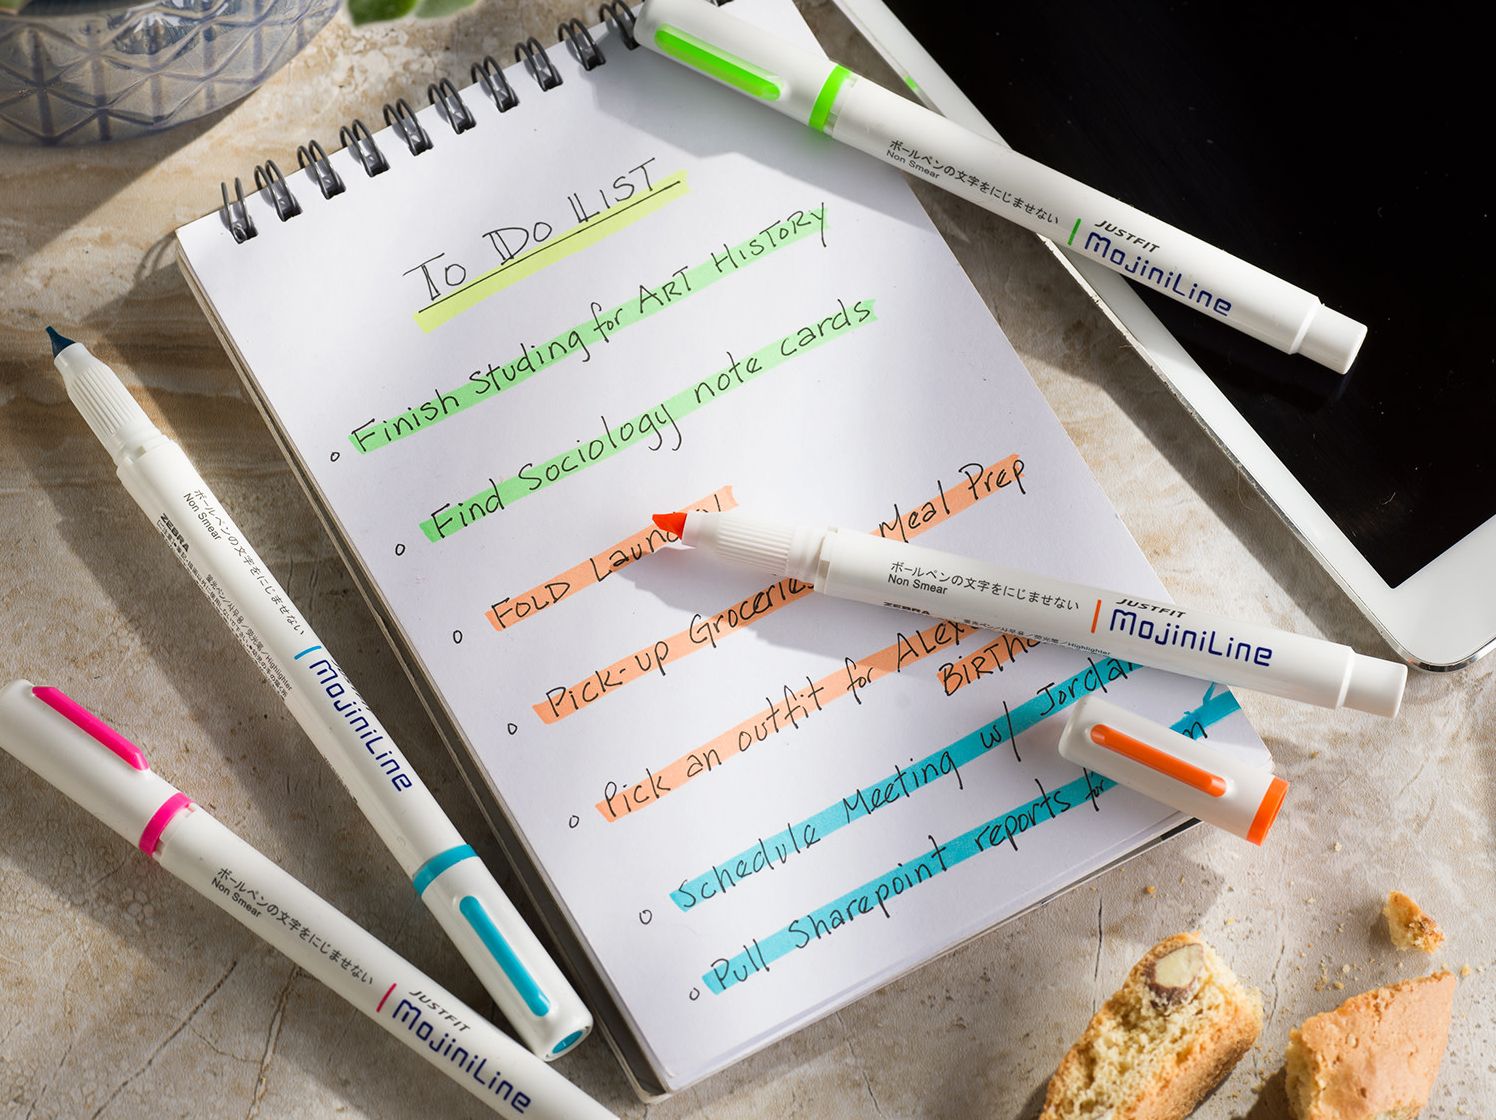 To Do LIST
Finish Studing for ART HISTORY
Find Sociology note cards
FOLD
Pick-up Groceries Meal Prep
Pick an outfit for
Schedule Meeting w/ Jordan
Pull Sharepoint reports for
ボールペンの文字をにじませない
Non Smear
JUSTFIT
MojiniLine
ボールペンの文字をにじませない
Non Smear
ZEBRA
蛍光ペン/사무용/荧光笔/Highlighter
JUSTFIT
MojiniLine
ボールペンの文字をにじませない
Non Smear
ZEBRA
MojiniLine
ボールペンの文字をにじませない
Non Smear
JUSTFIT
MojiniLine